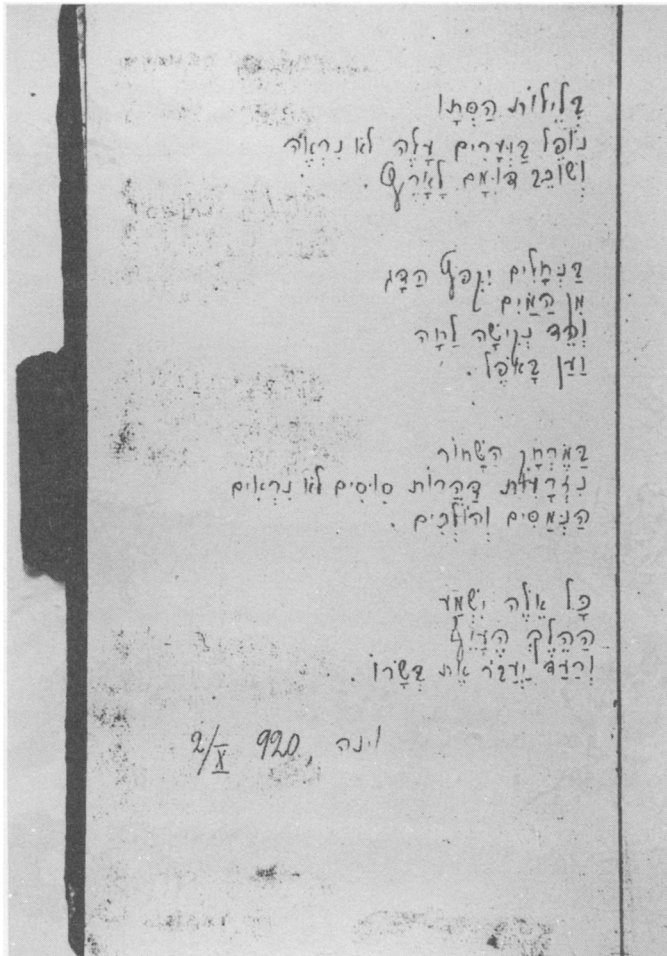 בְּלֵילוֹת הַסְּתָו
נוֹפֵל בַּיְּעָרִים עָלֶה לֹא נִרְאֶה
וְשׁוֹכֵב דּוּמָם לָאָרֶץ.
בַּנְּחָלִים יִקְפֹּץ הַדָּג
מִן הַמַּיִם
וְהֵד נְקִישָׁה לַחָה
יַעַן בָּאֹפֶל.
בַּמֶּרְחָק הַשָּׁחוֹר
נִזְרָעוֹת דַּהֲרוֹת סוּסִים לֹא נִרְאִים
הַנְּמַסִּים וְהוֹלְכִים.
כָּל אֵלֶּה יִשְׁמַע
הַהֵלֶךְ הֶעָיֵף
וְרַעַד יַעֲבֹר אֶת בְּשָׂרוֹ.
וינה, 920 2/X